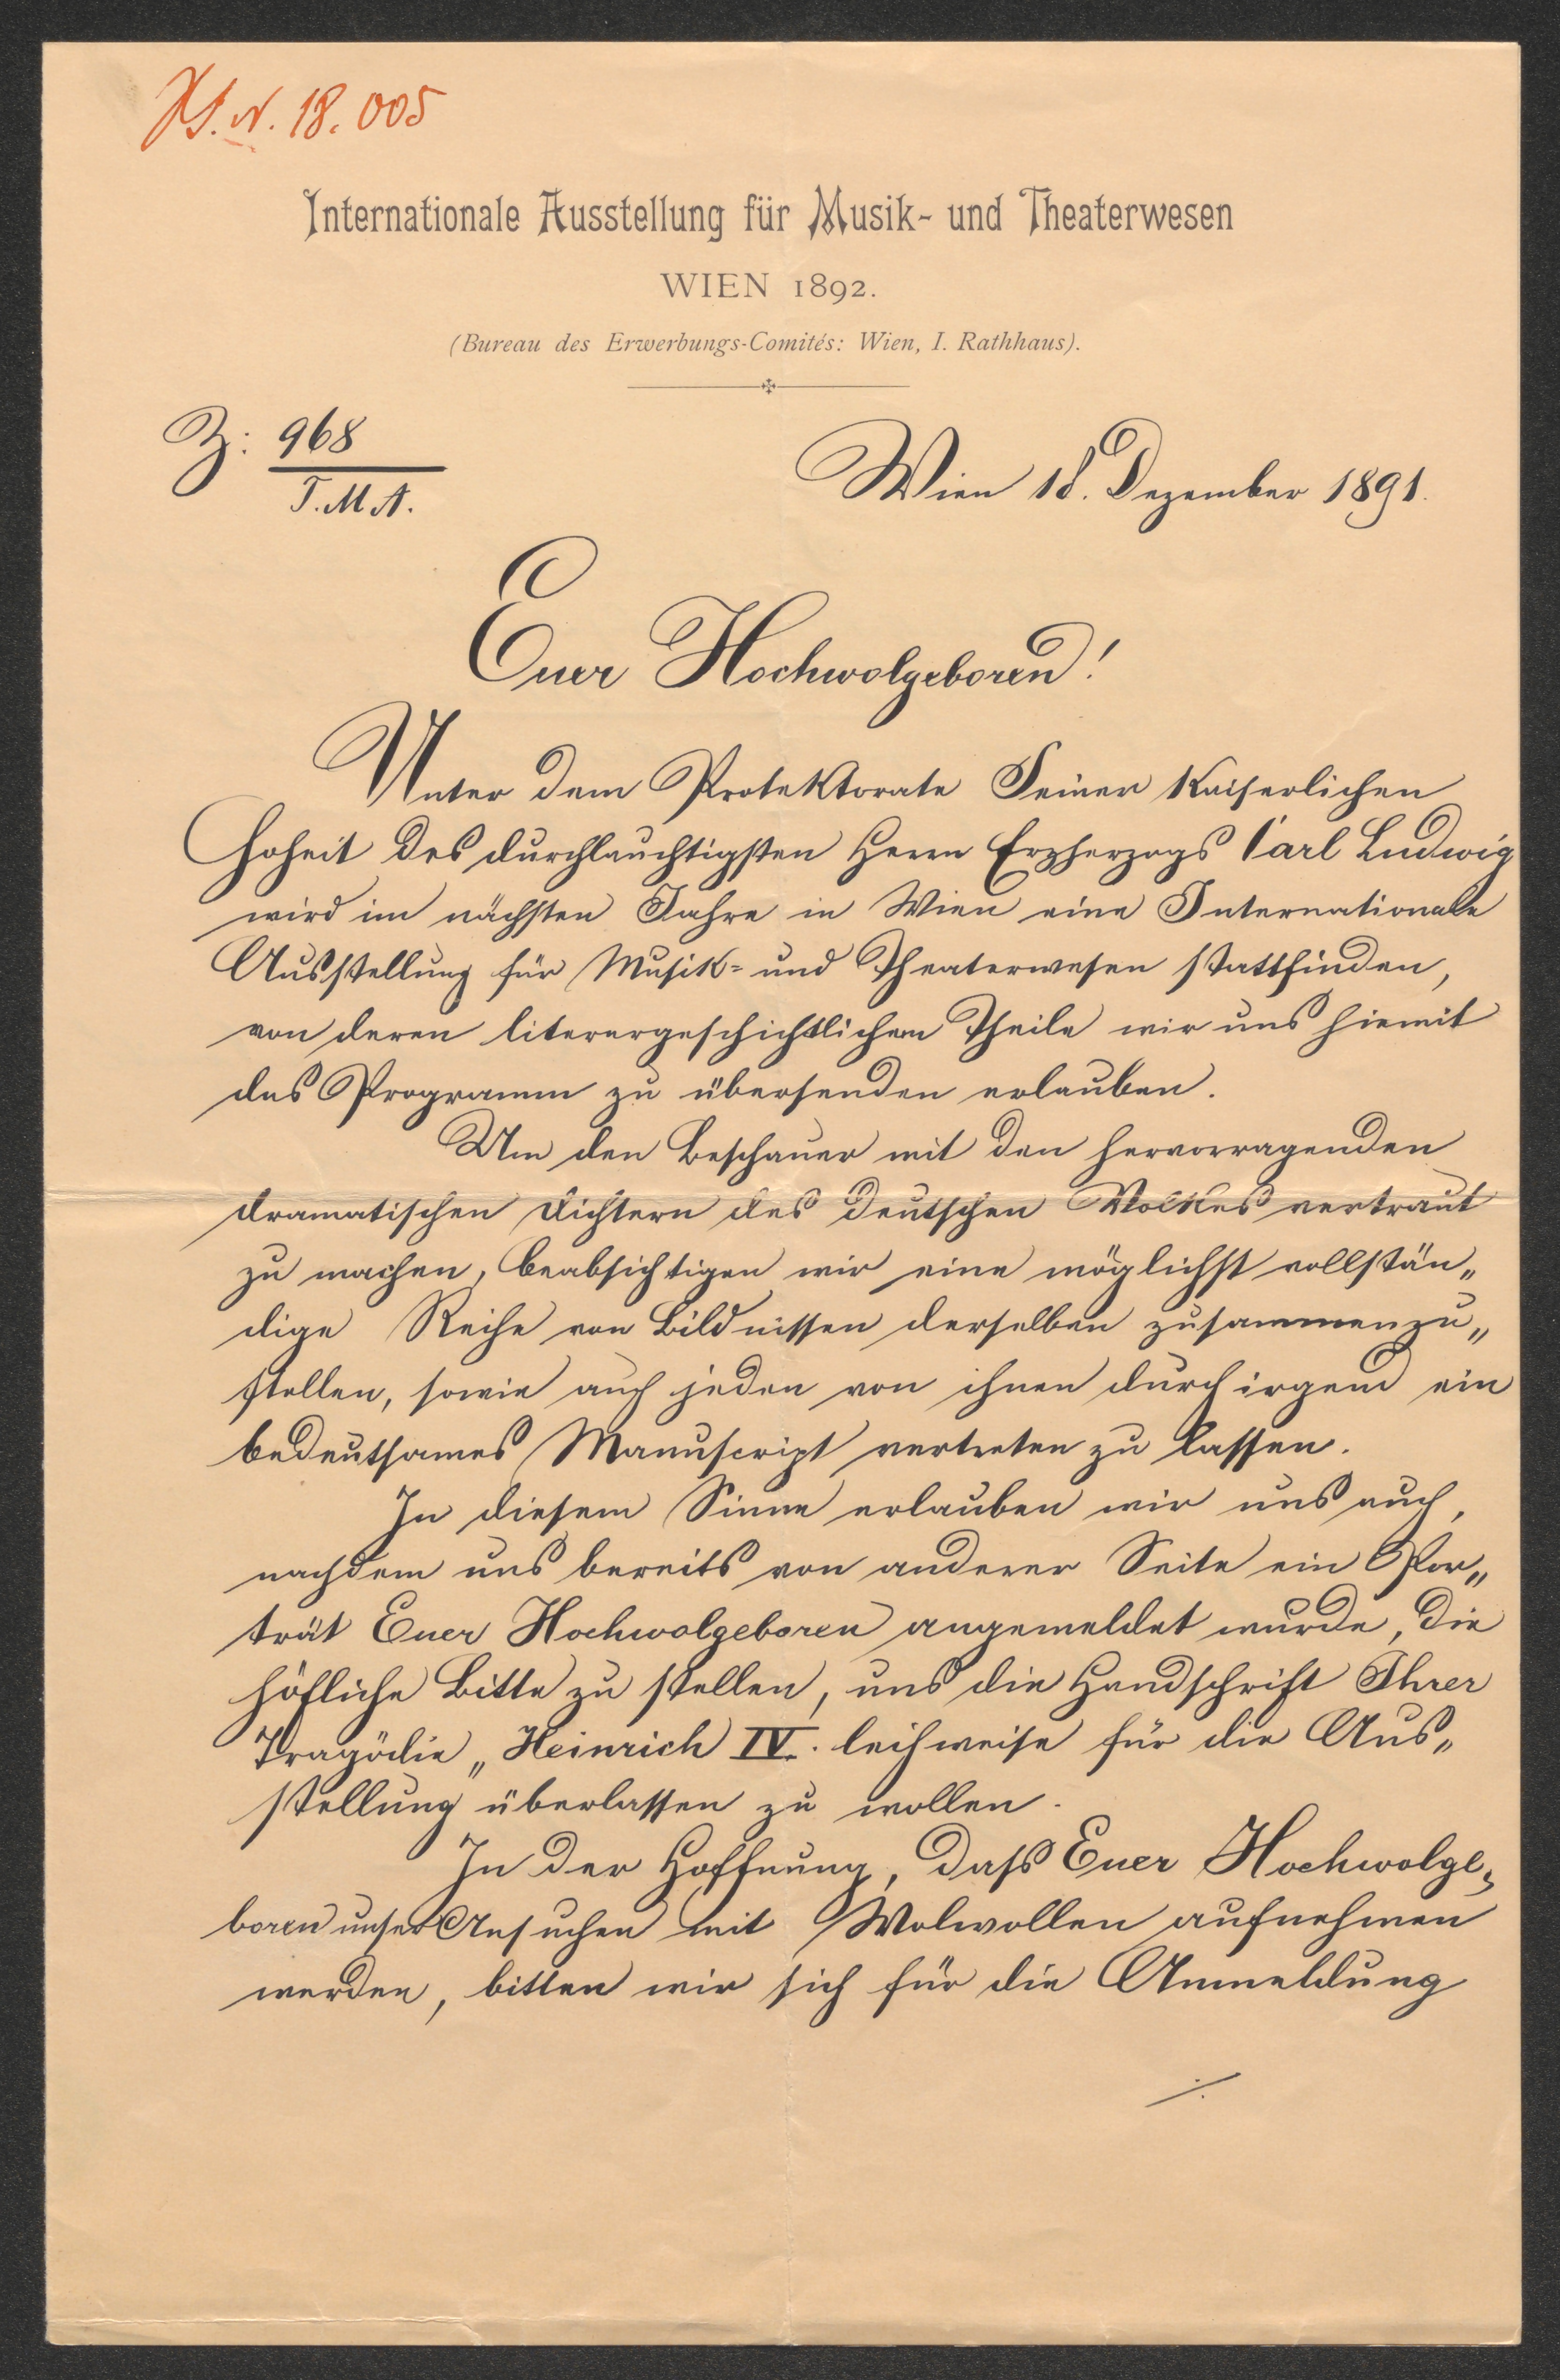 I. N. 18.005
Internationale Ausstellung für Musik- und Theaterwesen
WIEN 1892.
(Bureau des Erwerbungs-Comités: Wien, I. Rathhaus).
Z: 968
T. M. A.
Wien 18. Dezember 1891.
Euer Hochwolgeboren!
Unter dem Protektorate Seiner Kaiserlichen
Hoheit des durchlauchtigsten Herrn Erzherzogs Carl Ludwig
wird im nächsten Jahre in Wien eine Internationale
Ausstellung für Musik- und Theaterwesen stattfinden,
von deren literargeschichtlichem Theile wir uns hiemit
das Programm zu übersenden erlauben.
Um den Beschauer mit den hervorragenden
dramatischen Dichtern des deutschen Volkes vertraut
zu machen, beabsichtigen wir eine möglichst vollstän„
dige Reihe von Bildnissen derselben zusammenzu„
stellen, sowie auch jeden von ihnen durch irgend ein
bedeutsames Manuscript vertreten zu lassen.
In diesem Sinne erlauben wir uns auch,
nachdem uns bereits von anderer Seite ein Por„
trät Euer Hochwolgeboren angemeldet wurde, die
höfliche Bitte zu stellen, uns die Handschrift Ihrer
Tragödie „Heinrich IV. leihweise für die Aus„
stellung überlassen zu wollen.
In der Hoffnung, daß Euer Hochwolge„
boren unser Ansuchen mit Wolwollen aufnehmen
werden, bitten wir sich für die Anmeldung
./.